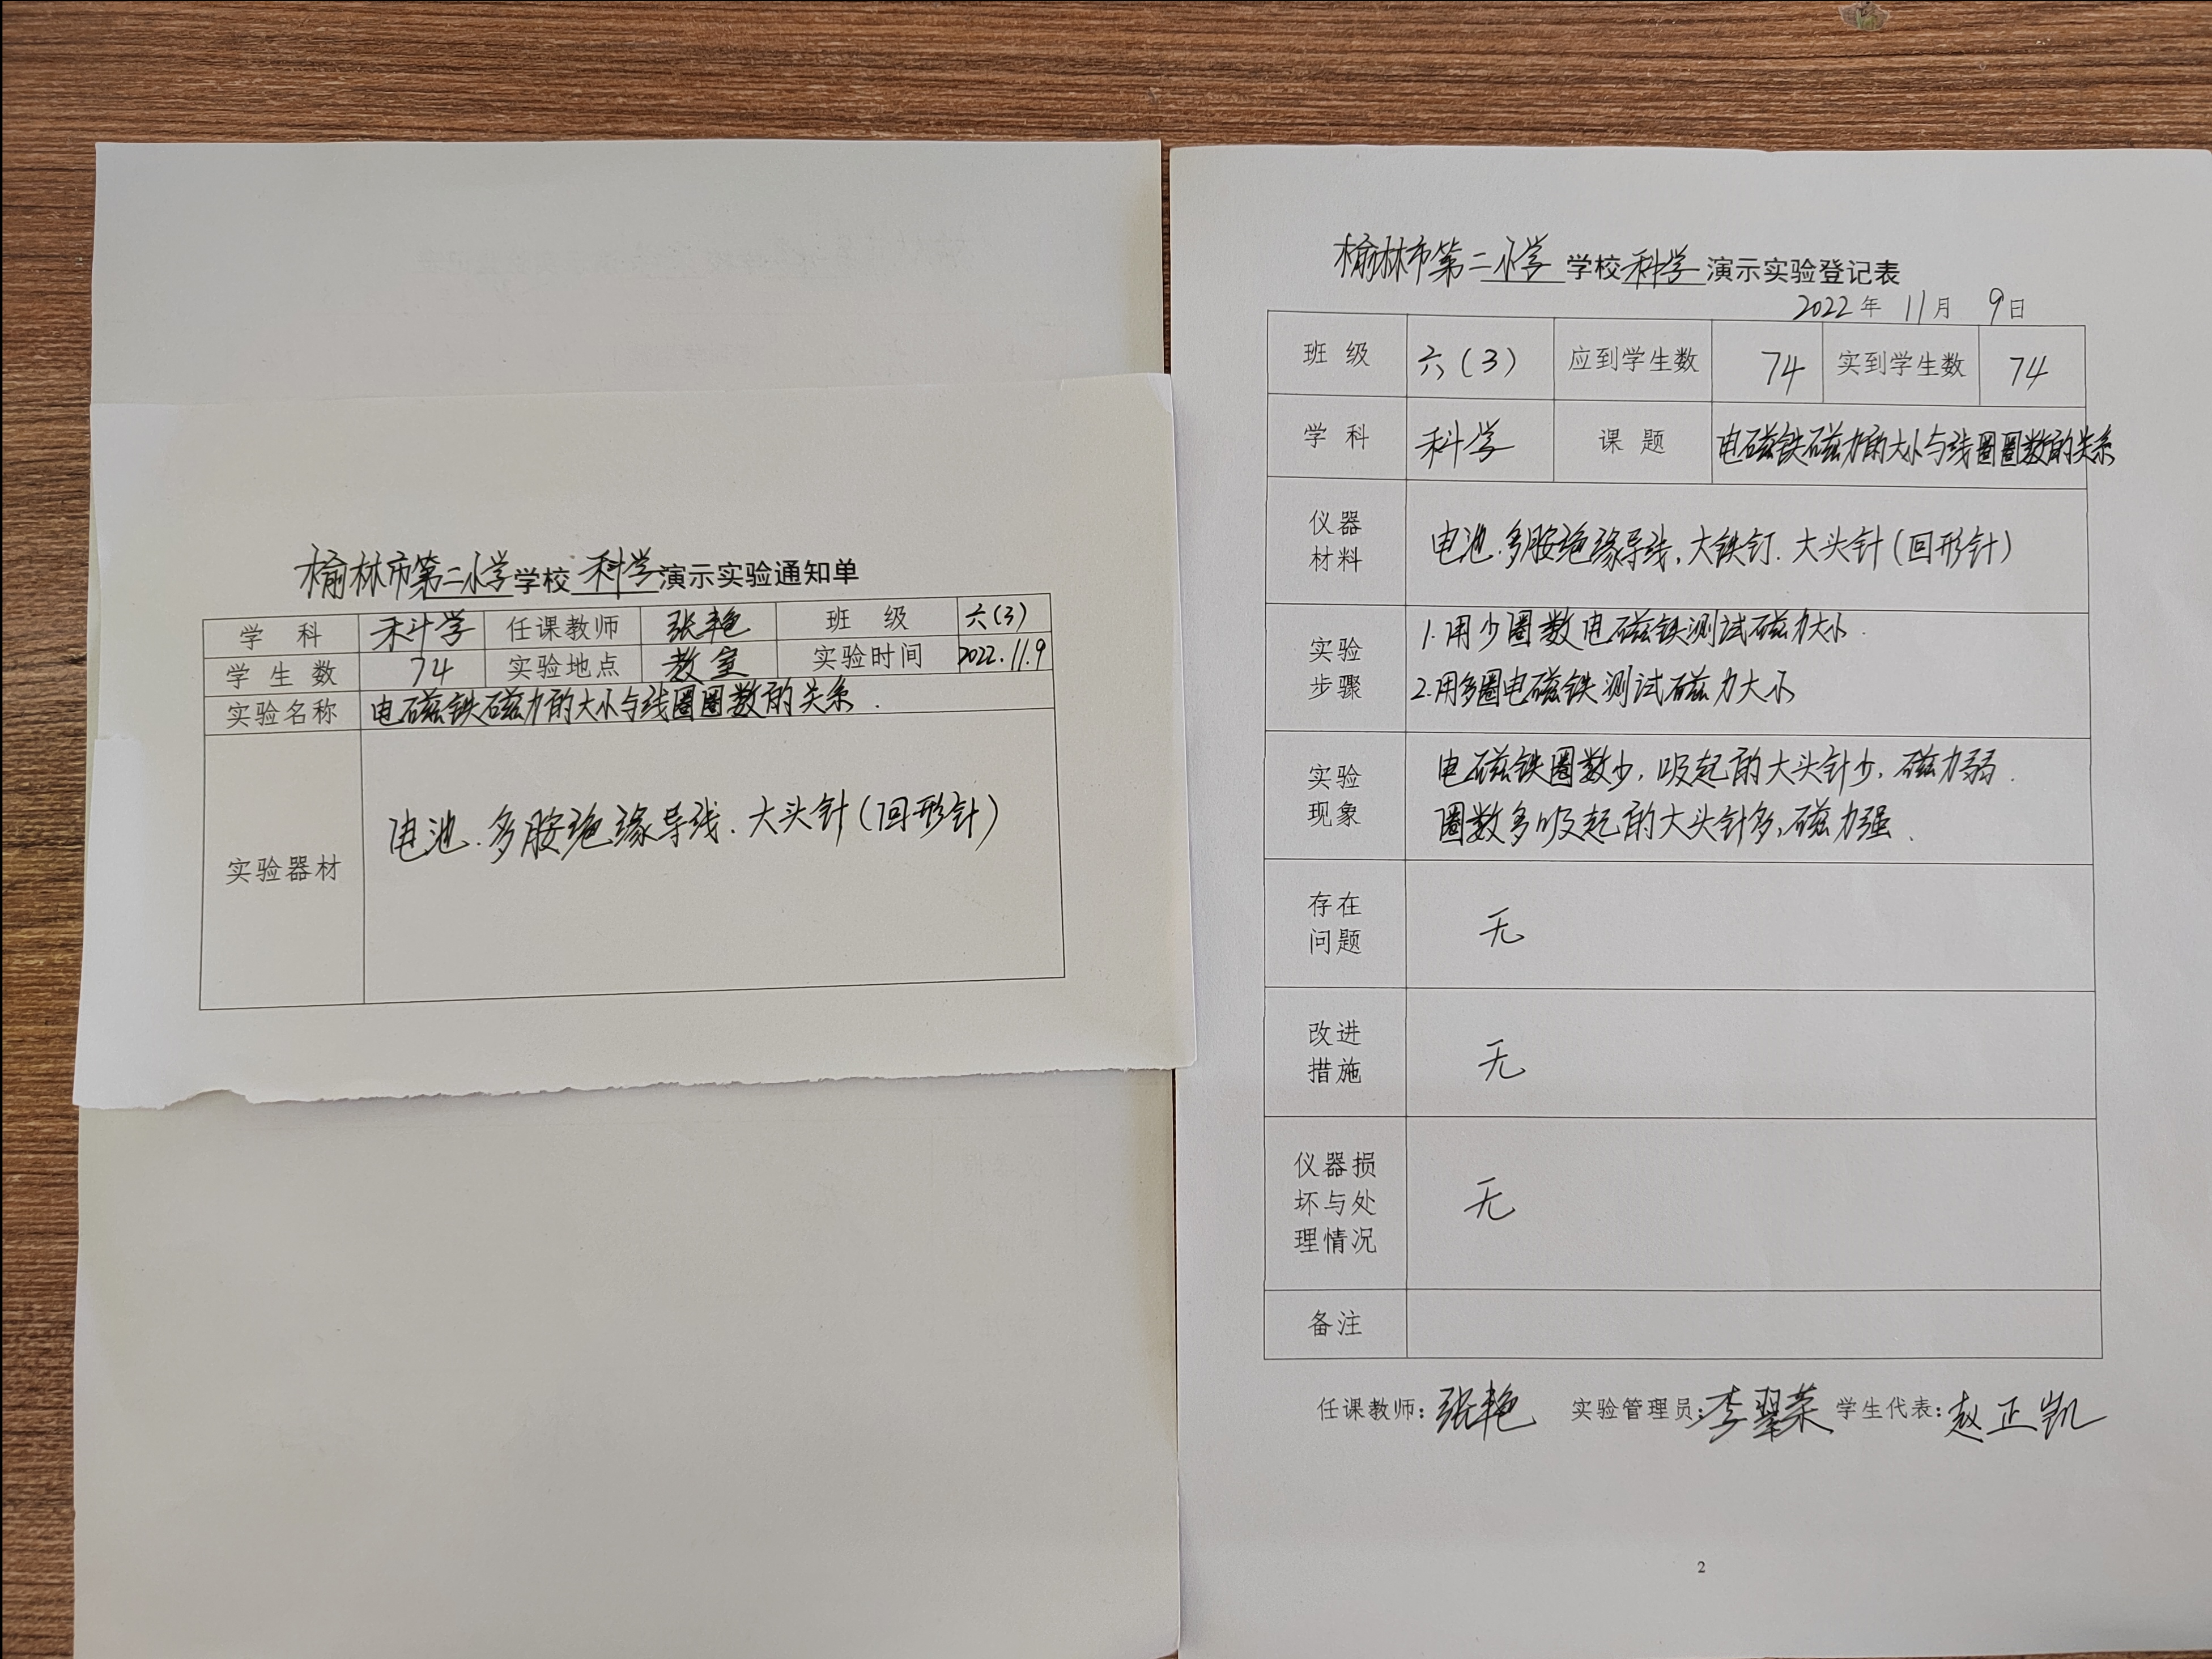 榆林市第二小学学校科学演示实验通知单
学 科 科学 任课教师 张艳 班 级 六(3)
学 生 数 74 实验地点 教室 实验时间 2022.11.9
实验名称 电磁铁磁力的大小与线圈圈数的关系.
实验器材 电池.多胶绝缘导线.大头针(回形针)
榆林市第二小学 学校科学演示实验登记表
2022年 11月 9日
班 级 六(3) 应到学生数 74 实到学生数 74
学 科 科学 课 题 电磁铁磁力的大小与线圈圈数的关系
仪器
材料
电池.多胶绝缘导线.大铁钉.大头针(回形针)
实验
步骤
1.用少圈数电磁铁测试磁力大小.
2.用多圈电磁铁测试磁力大小
实验
现象
电磁铁圈数少,吸起的大头针少,磁力弱.
圈数多吸起的大头针多,磁力强.
存在
问题
无
改进
措施
无
仪器损
坏与处
理情况
无
备注
任课教师:张艳 实验管理员:李翠荣 学生代表:赵正凯
2